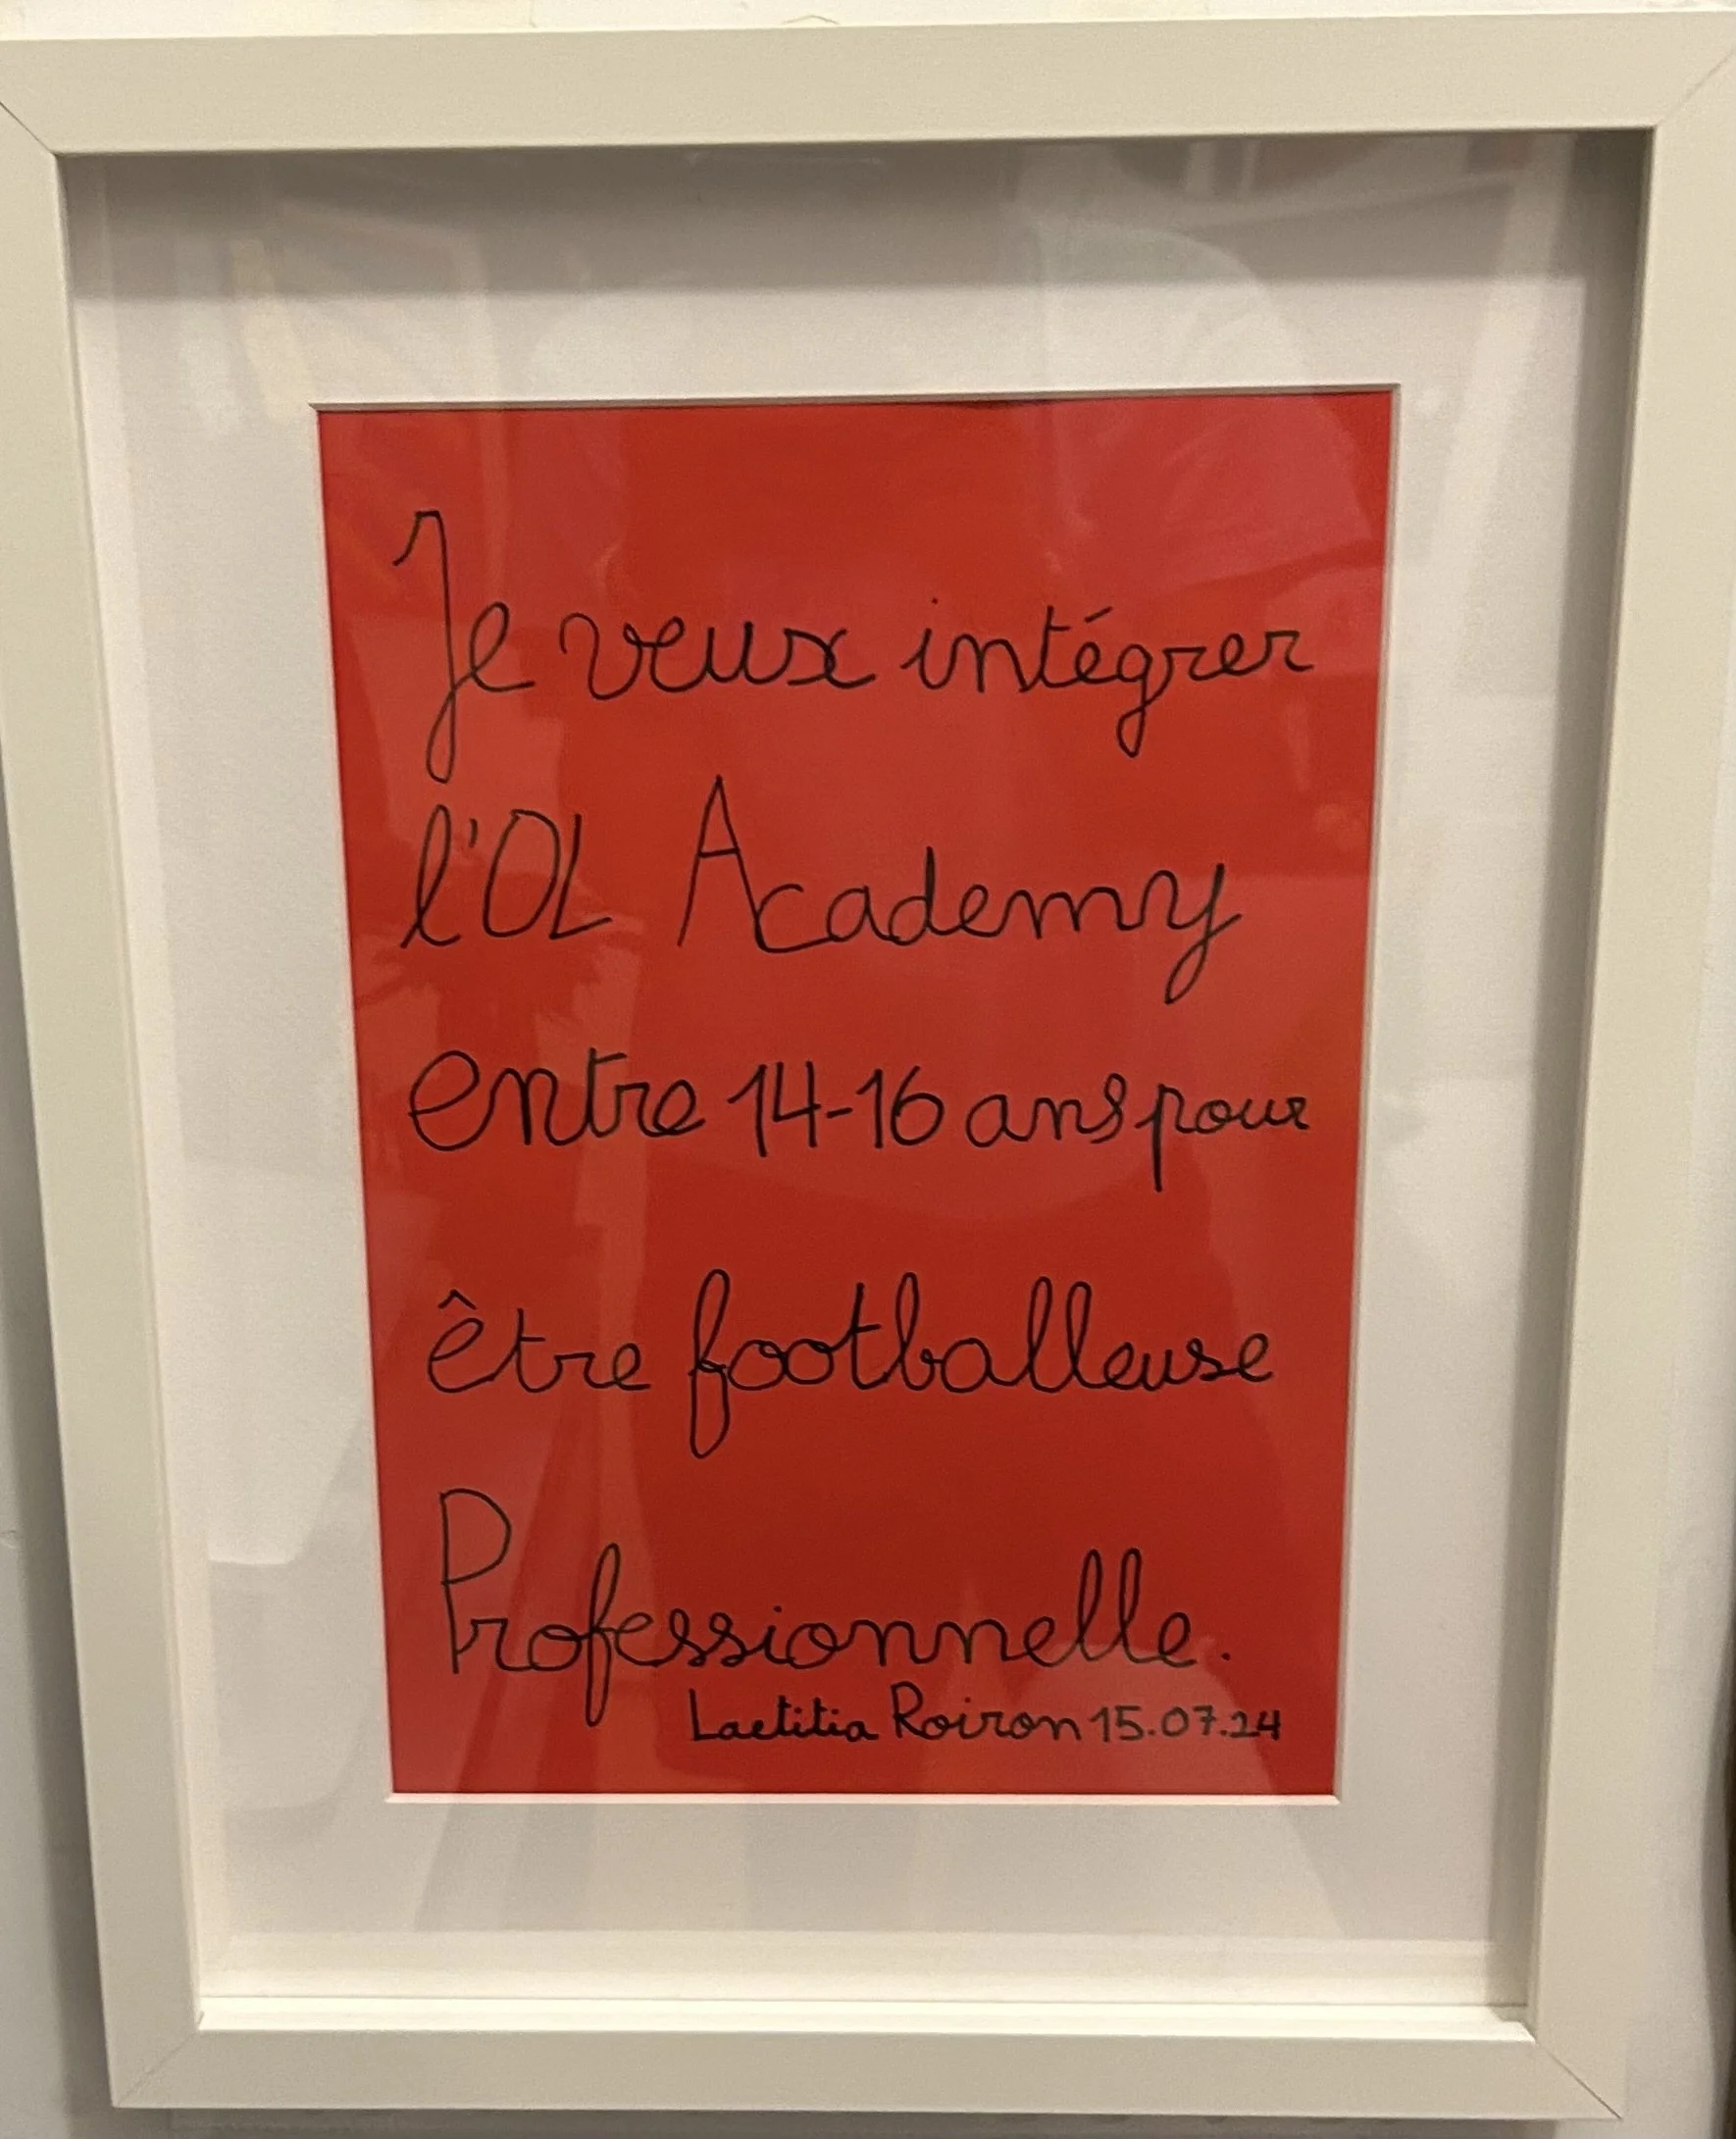 Je veux intégrer
l'OL Academy
entre 14-16 ans pour
être footballeuse
Professionnelle.
Laetitia Roiron 15.07.24